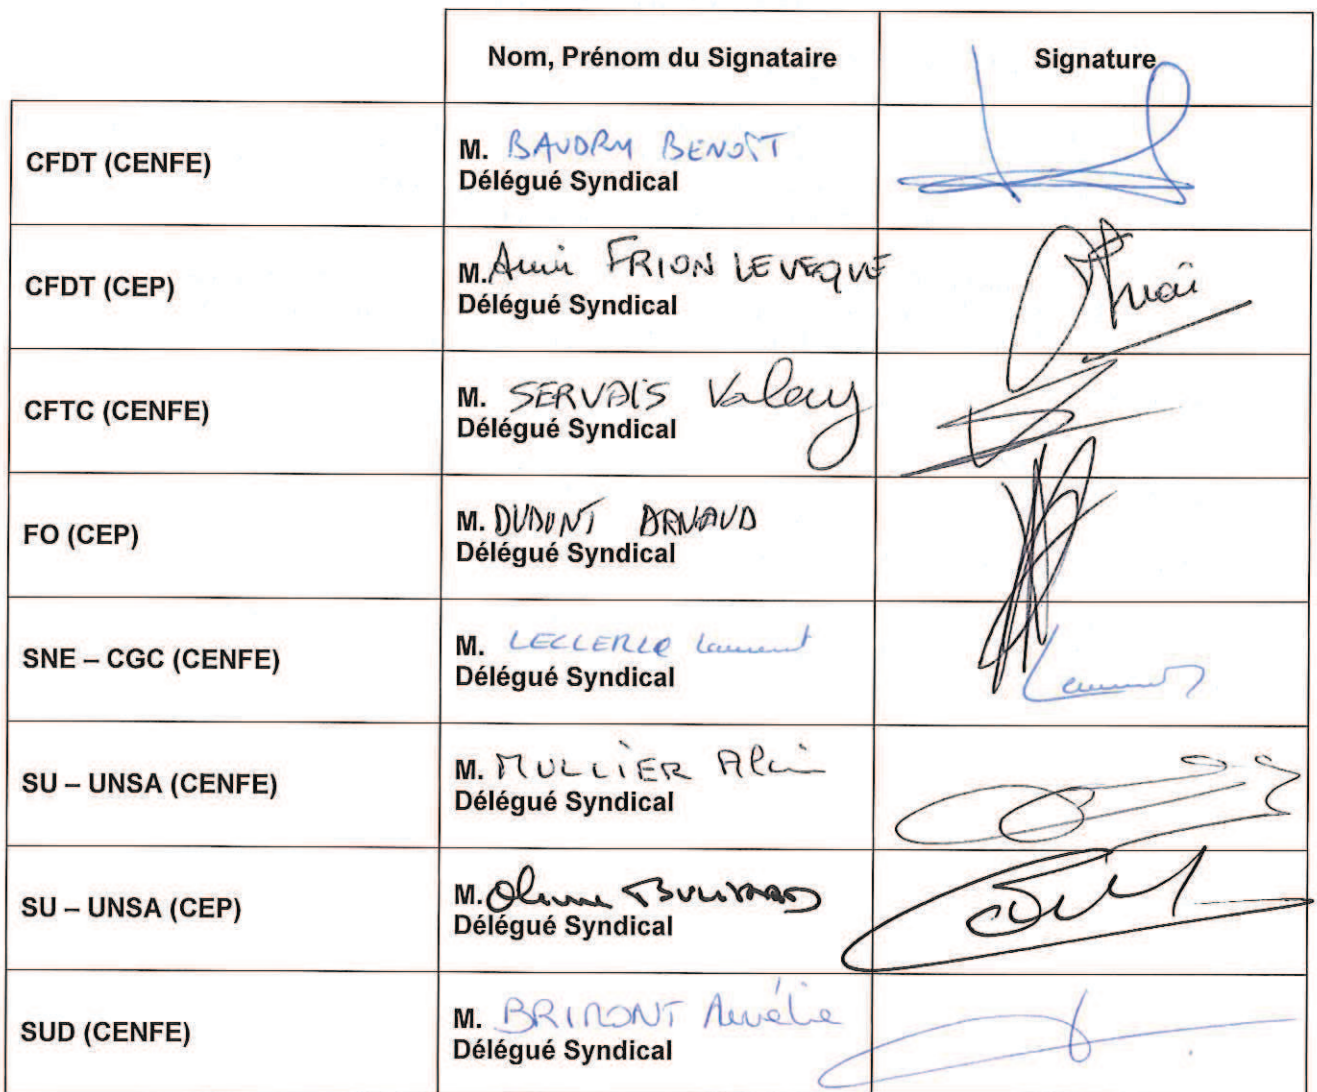 Nom, Prénom du Signataire Signature
CFDT (CENFE)
M. BAUDRY BENOÎT
Délégué Syndical
CFDT (CEP)
M. FRION LEVEQUE
Délégué Syndical
CFTC (CENFE)
M. SERVAIS Valery
Délégué Syndical
FO (CEP)
M. ARNAUD
Délégué Syndical
SNE – CGC (CENFE)
M. LECLERCQ Laurent
Délégué Syndical
SU – UNSA (CENFE)
M. MULLIER Alain
Délégué Syndical
SU – UNSA (CEP)
M.
Délégué Syndical
SUD (CENFE)
M. BRIMONT Aurélie
Délégué Syndical